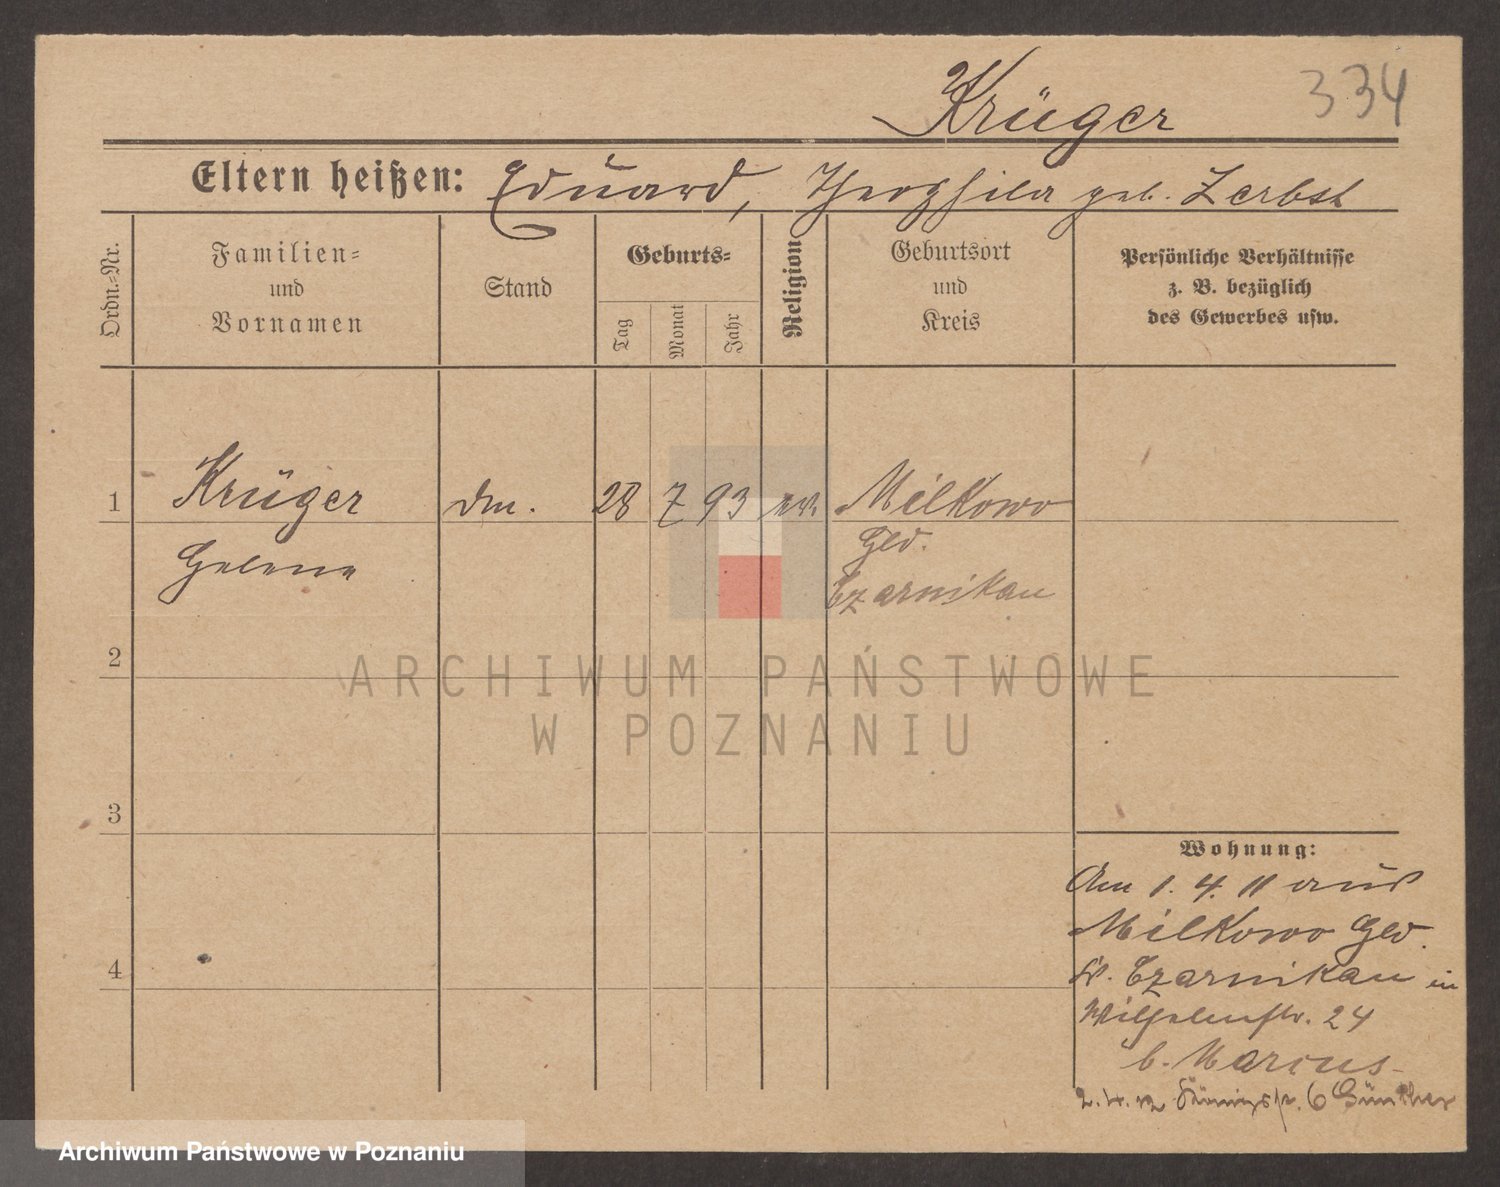 Krüger 334
Eltern heißen: Eduard, Theophila geb. Zerbst
Ordn.-Nr.
Familien-
und
Vornamen
Stand
Geburts-
Tag
Monat
Jahr
Religion
Geburtsort
und
Kreis
Persönliche Verhältnisse
z. B. bezüglich
des Gewerbes usw.
1 Krüger dm. 28 7 93 ev. Milkowo
Helene Gld.
Czarnikau
2
ARCHIWUM PAŃSTWOWE
W POZNANIU
3
Wohnung:
Am 1. 4. 11 aus
Milkowo Gld.
Kr. Czarnikau in
Wilhelmstr. 24
b. Marcus
4
2. 4. 12 Königspl. 6 Günther
Archiwum Państwowe w Poznaniu